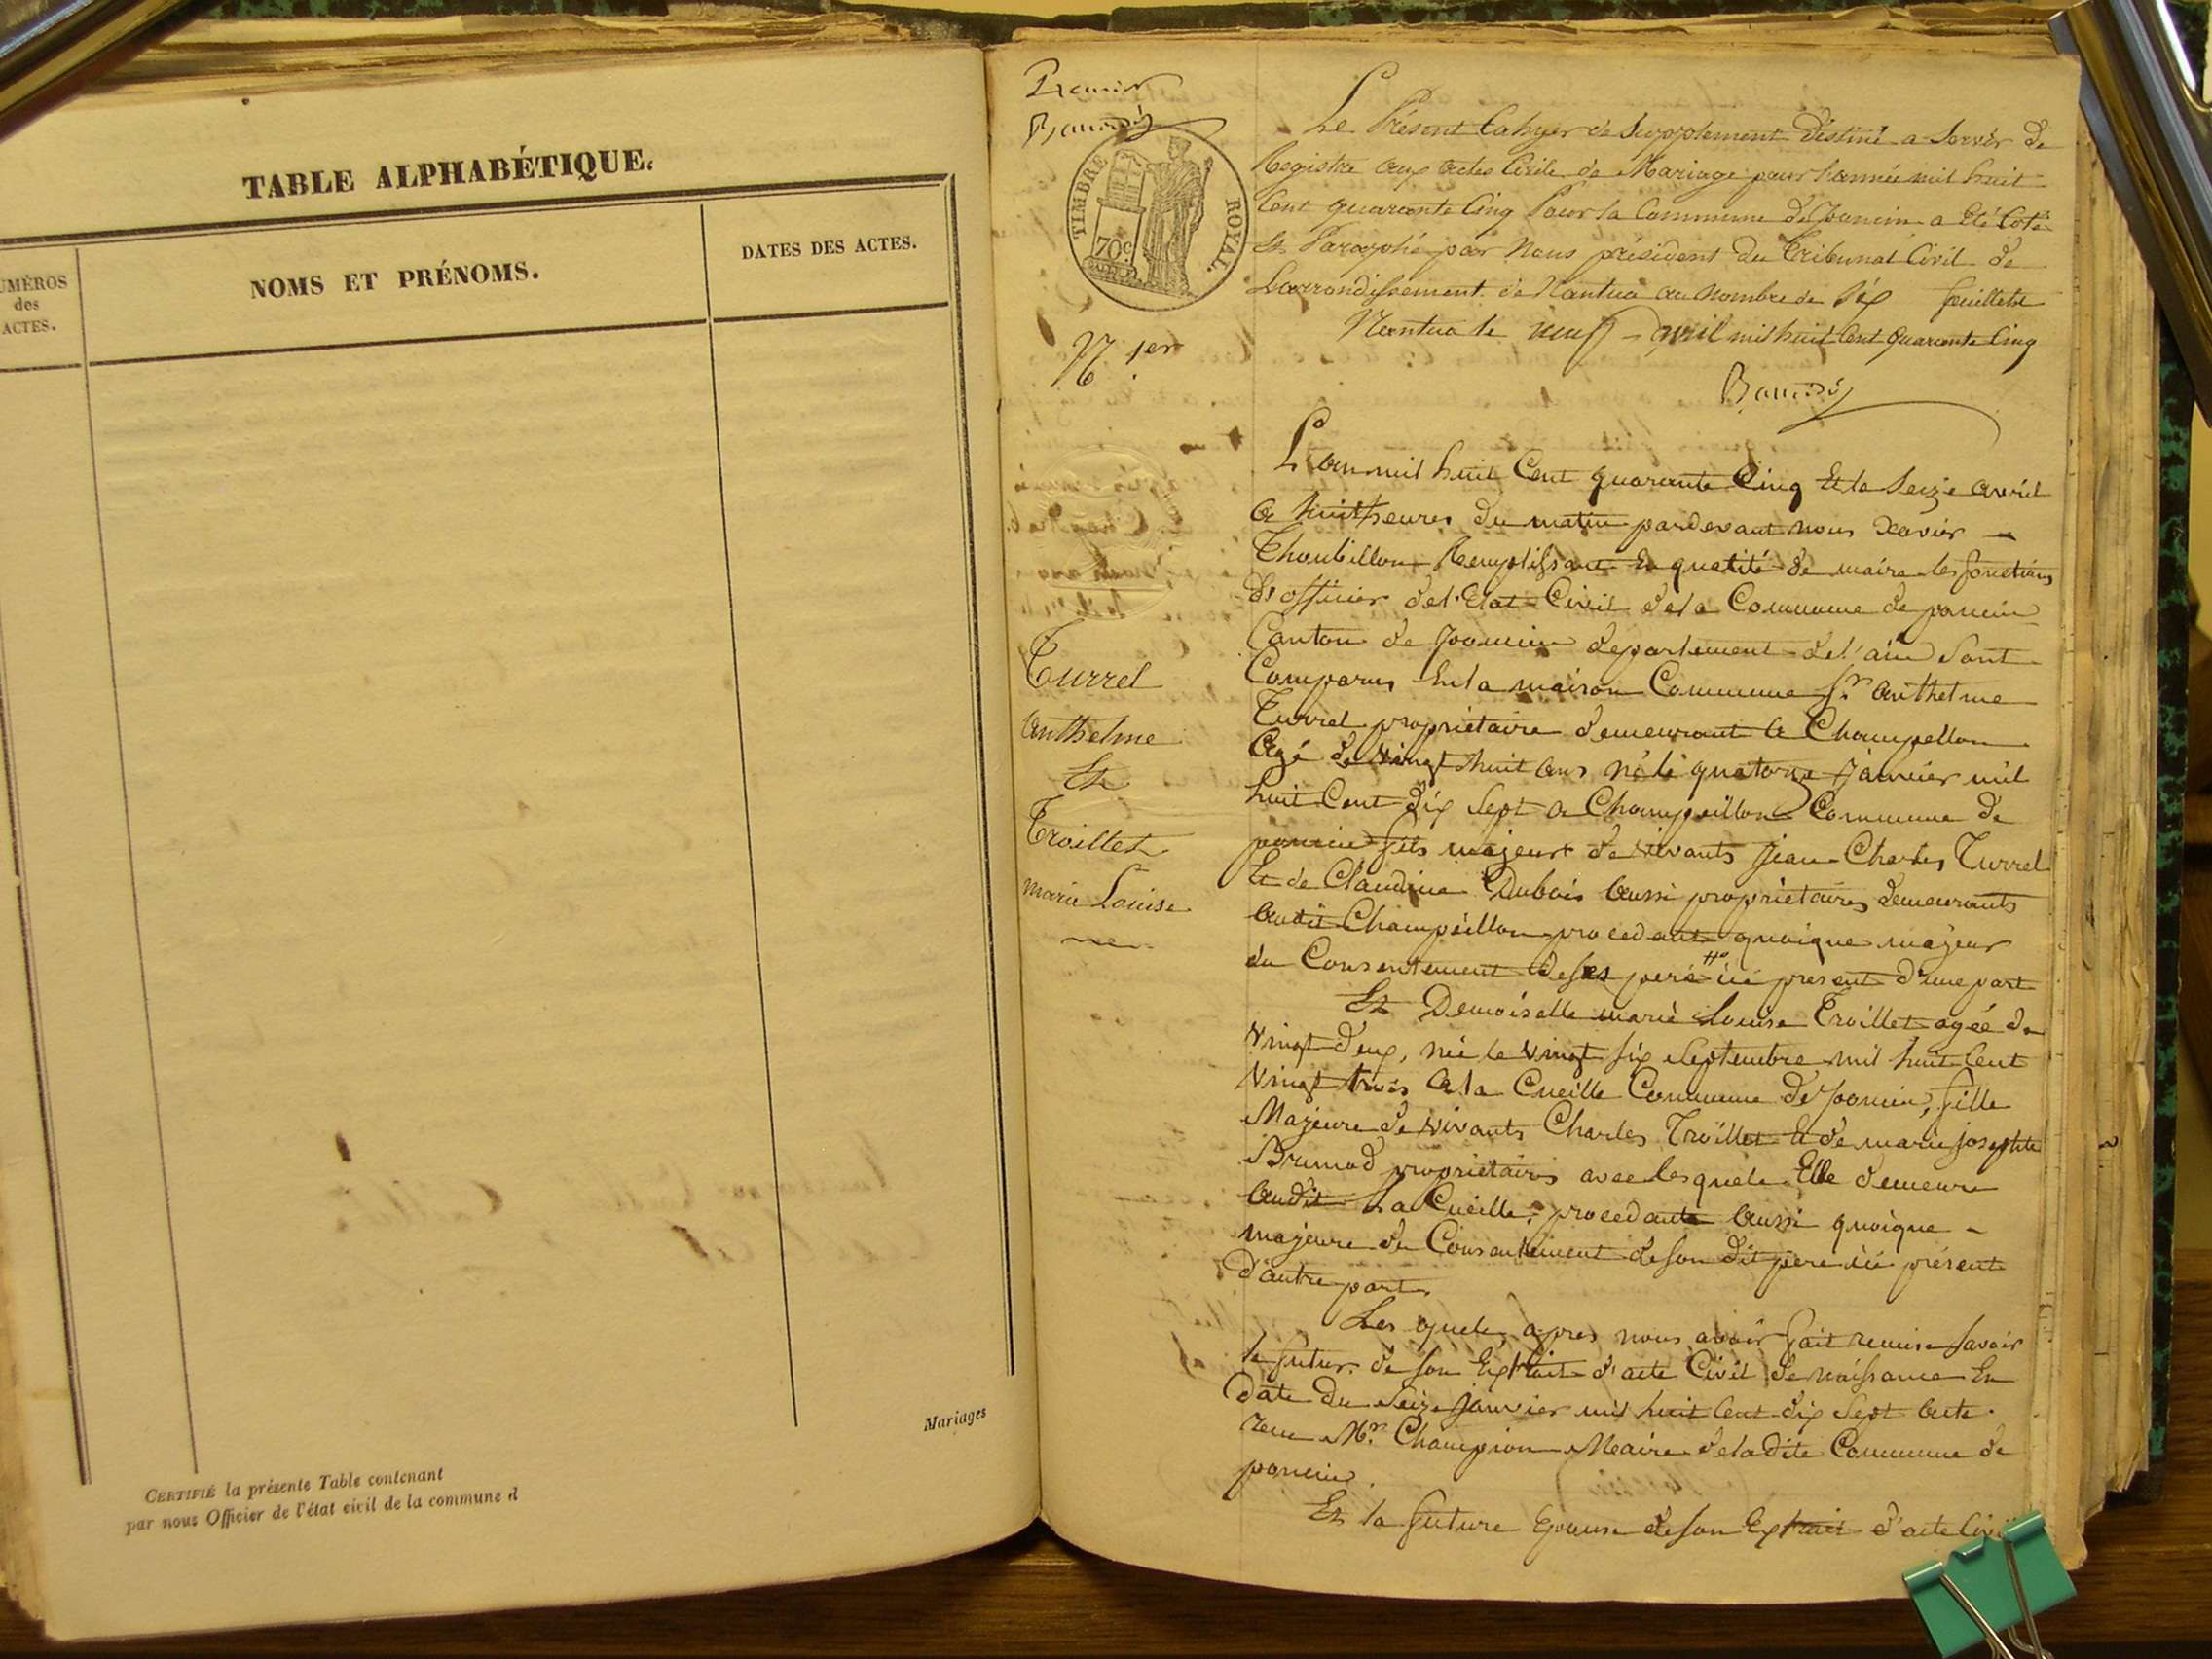 TABLE ALPHABÉTIQUE.
UMÉROS
des
ACTES.
NOMS ET PRÉNOMS.
DATES DES ACTES.
Mariages
CERTIFIÉ la présente Table contenant
par nous Officier de l'état civil de la commune d
Premier
TIMBRE ROYAL.
70c.
N 1er
Turrel
anthelme
Et
Troillet
marie Louise
Le Présent Cahyer de Supplement déstiné a Servir de
Registre aux actes Civils de Mariage pour l'année mil huit
Cent quarante Cinq Pour la Commune de Poncin a Eté Coté
Et Paraphé par Nous président du Tribunal Civil de
L'arrondissement de Nantua au Nombre de Six feuillets
Nantua le neuf avril mil huit Cent quarante Cinq
L'an mil huit Cent quarante Cinq Et le Seize avril
a huit heures du matin pardevant nous Xavier
Thoubillon Remplissant En qualité de maire les fonctions
d'officier de l'Etat Civil de la Commune de poncin
Canton de Poncin departement de l'ain Sont
Comparus En la maison Commune Sr. anthelme
Turrel propriétaire demeurant a Champellon
agé de vingt huit ans né le quatorze janvier mil
huit Cent dix Sept a Champeillon Commune de
poncin fils majeur de vivants Jean-Charles Turrel
Et de Claudine Dubois aussi propriétaires demeurants
audit Champeillon procedant quoique majeur
du Consentement de ses pere ici present d'une part
Et Demoiselle marie Louise Troillet agée de
vingt deux, née le vingt six Septembre mil huit Cent
vingt trois a la Cueille Commune de Poncin, fille
Majeure de vivants Charles Troillet Et de marie josephte
Brunod propriétaires avec lesquels Elle demeure
audit La Cueille, procedante aussi quoique -
majeure du Consentement de son dit pere ici présent
d'autre part.
Les quels apres nous avoir fait remise Savoir
le futur de son Extrait d'acte Civil de naissance En
date du Seize janvier mil huit Cent dix Sept acte
recu Mr. Champion Maire de ladite Commune de
poncin.
Et la future Epouse de son Extrait d'acte Civil